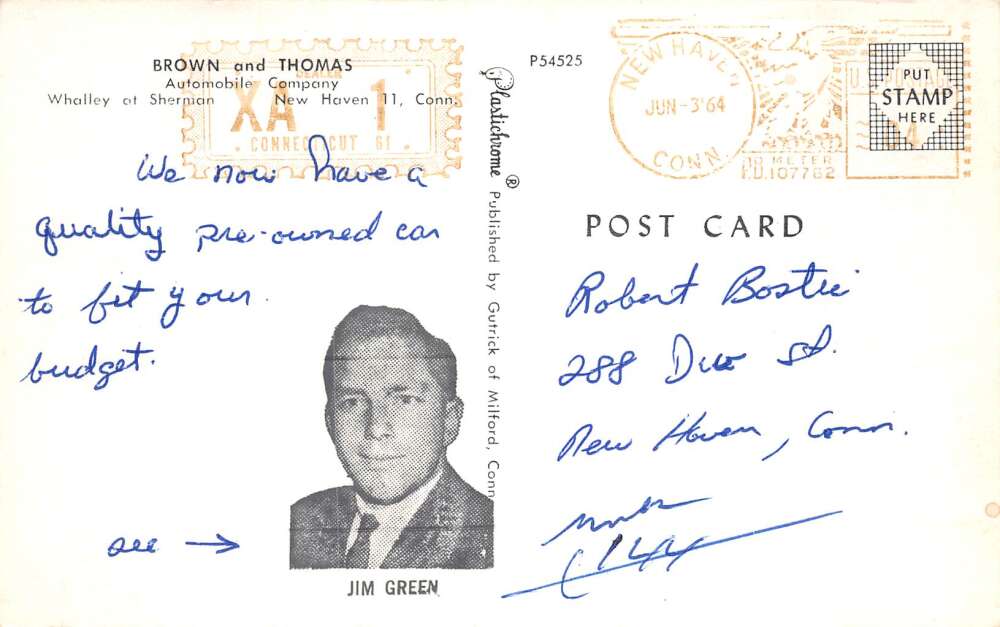 BROWN and THOMAS
Automobile Company
Whalley at Sherman New Haven 11, Conn.
DEALER
XA 1
CONNECTICUT 61
We now have a
quality pre-owned car
to fit your
budget.
see →
JIM GREEN
Plastichrome ® Published by Gutrick of Milford, Conn
P54525
NEW HAVEN
JUN-3'64
CONN
PB METER
P.O. 107762
PUT
STAMP
HERE
POST CARD
Robert Bostic
288 Dew St.
New Haven, Conn.